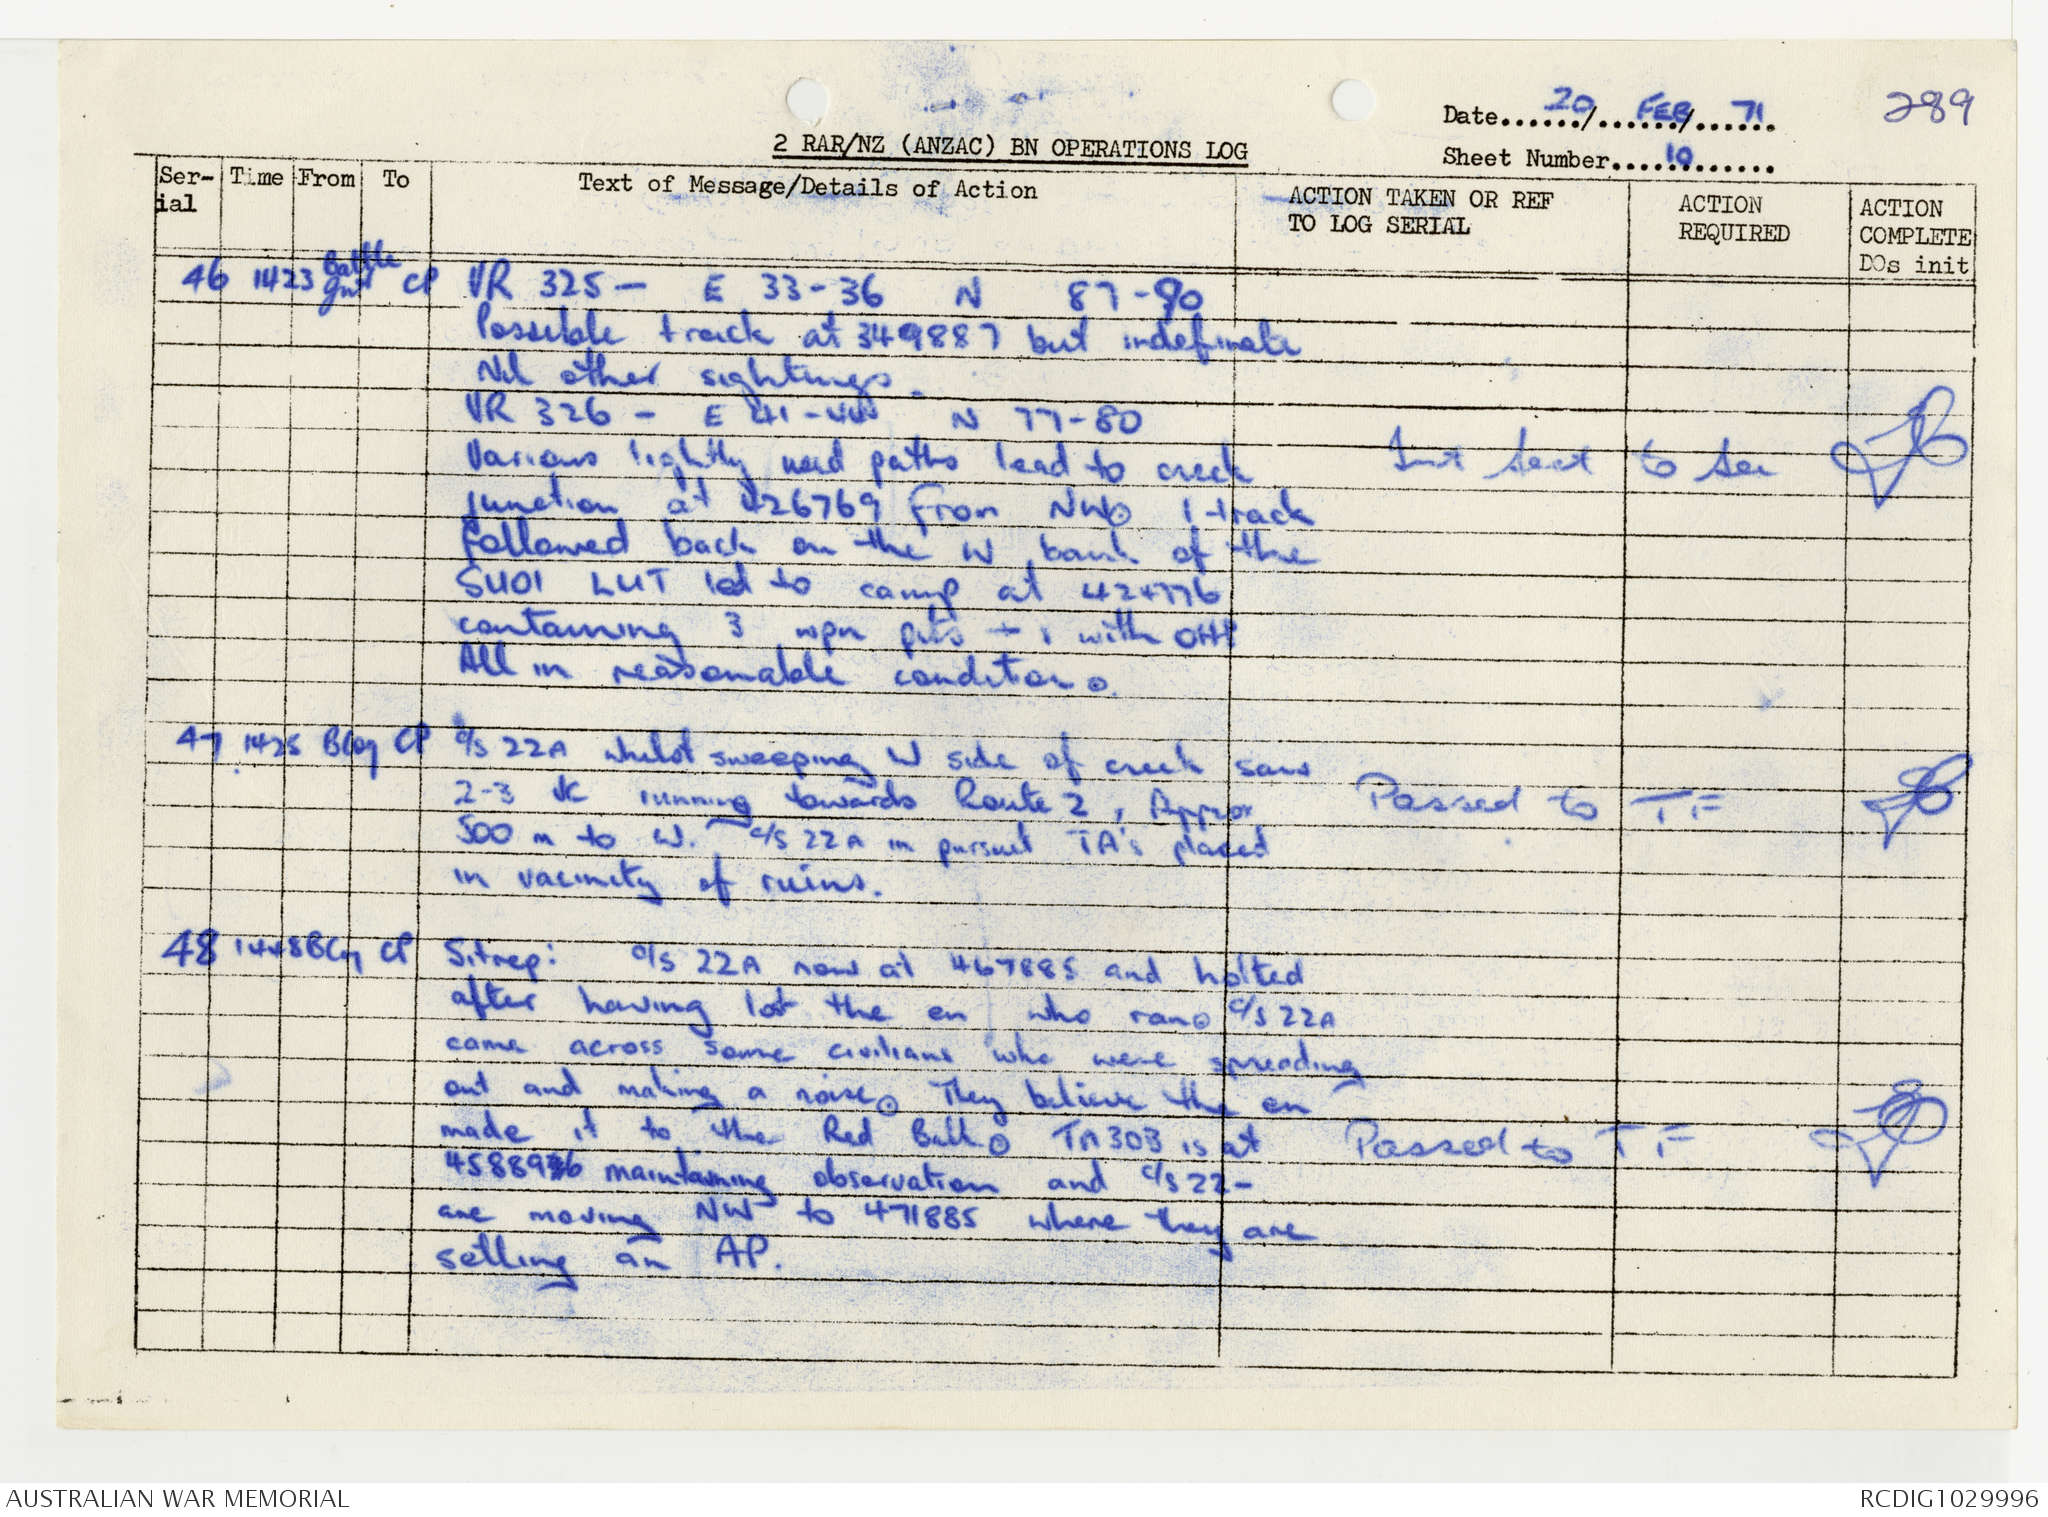 289
Date 20 / FEB / 71
2 RAR/NZ (ANZAC) BN OPERATIONS LOG
Sheet Number 10
Ser-ial Time From To Text of Message/Details of Action ACTION TAKEN OR REF TO LOG SERIAL ACTION REQUIRED ACTION COMPLETE DOs init
46 1423 Battle Gnt CP VR 325 - E 33-36 N 87-90
Possible track at 349887 but indefinate
Nil other sightings.
VR 326 - E 41-44 N 77-80
Various lightly used paths lead to creek Int Sect to see
junction at 426769 from NW. 1 track
followed back on the W bank of the
SUOI LUT led to camp at 424776
containing 3 wpn pits + 1 with OHP
All in reasonable condition.
47 1425 B Coy CP c/s 22A whilst sweeping W side of creek saw
2-3 VC running towards Route 2, Approx Passed to TF
500 m to W. c/s 22A in pursuit TA's placed
in vacinity of ruins.
48 1448 B Coy CP Sitrep: c/s 22A now at 467885 and holted
after having lost the en who ran. c/s 22A
came across some civilians who were spreading
out and making a noise. They believe the en
made it to the Red Belt. TA 303 is at Passed to TF
maintaining observation and c/s 22-
are moving NW to 471885 where they are
setting an AP.
AUSTRALIAN WAR MEMORIAL
RCDIG1029996